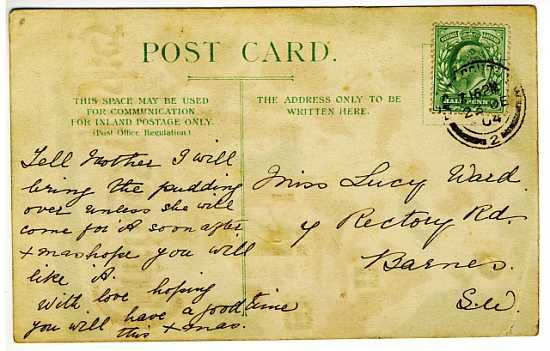 POST CARD.
THIS SPACE MAY BE USED
FOR COMMUNICATION
FOR INLAND POSTAGE ONLY.
(Post Office Regulation)
THE ADDRESS ONLY TO BE
WRITTEN HERE.
HALFPENNY
DE
04
2
Tell Mother I will
bring the pudding
over unless she will
come for it soon after
Xmas hope you will
like it.
With love hoping
you will have a good time
this Xmas.
Miss Lucy Ward.
4 Rectory Rd.
Barnes.
S.W.